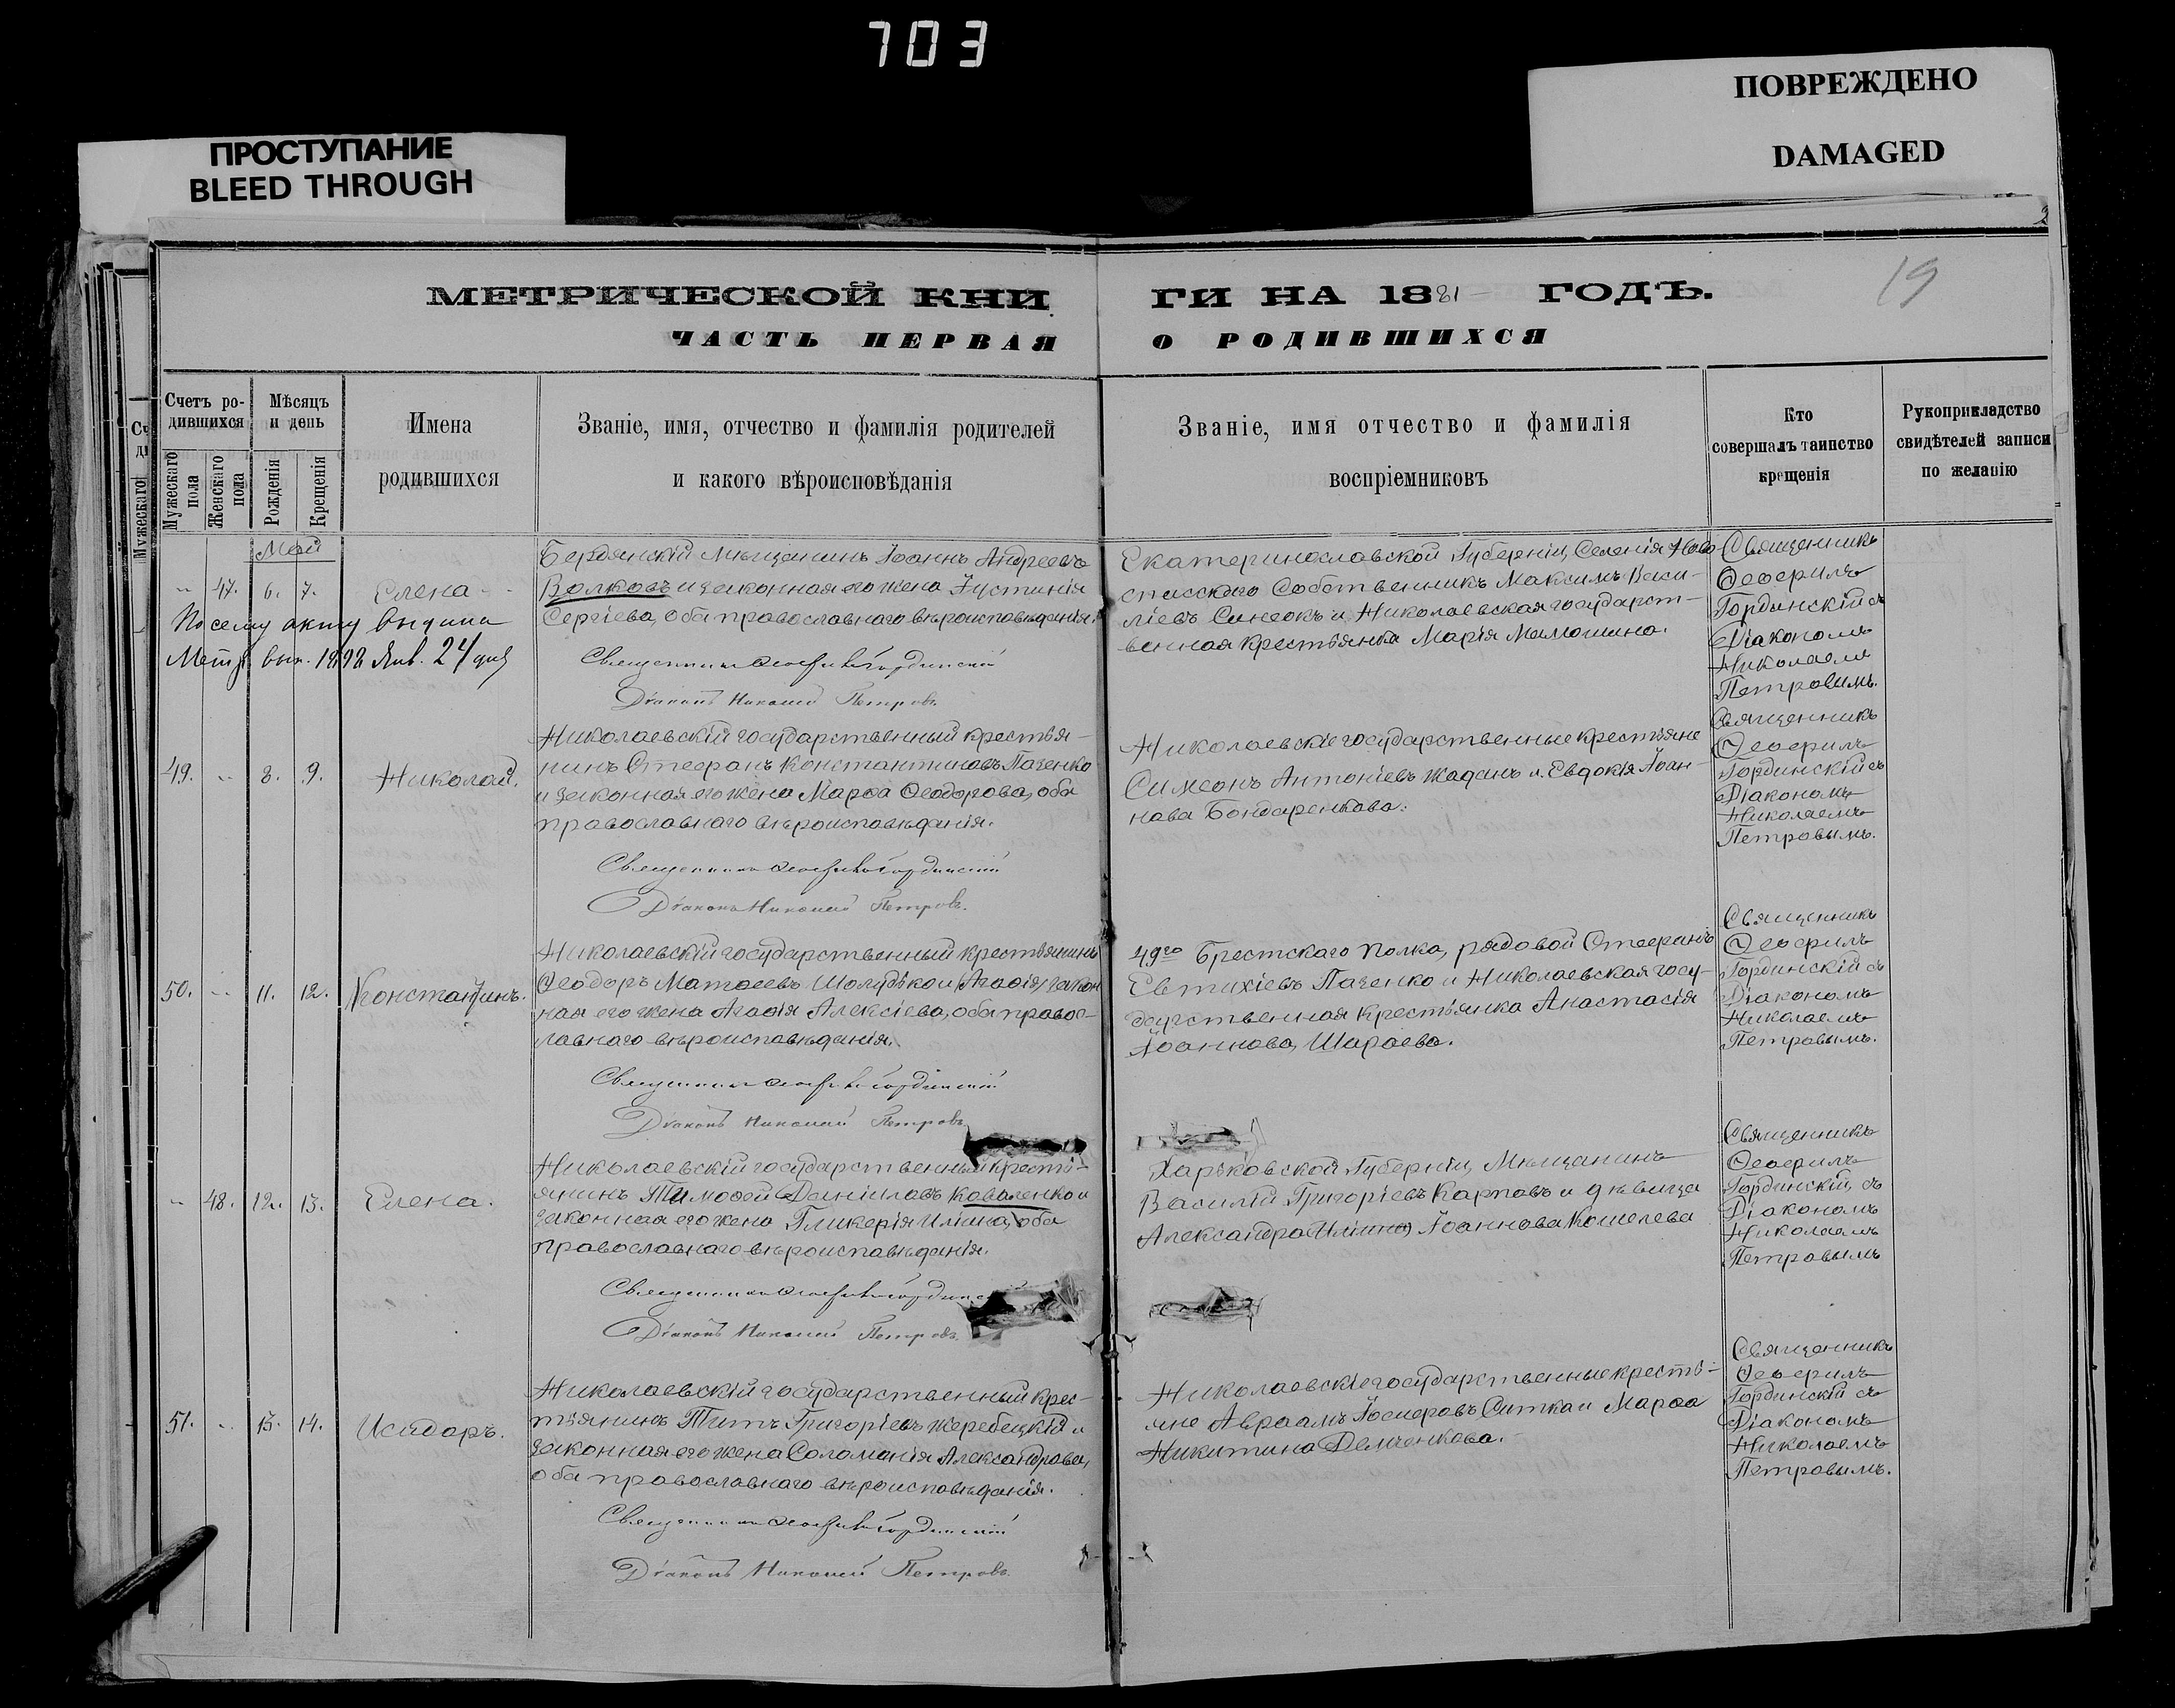 703
ПОВРЕЖДЕНО
DAMAGED
ПРОСТУПАНИЕ
BLEED THROUGH
МЕТРИЧЕСКОЙ КНИ ГИ НА 1881 ГОДЪ.
19
ЧАСТЬ ПЕРВАЯ О РОДИВШИХСЯ
Счетъ ро-
дившихся
Мужескаго пола
Женскаго пола
Мѣсяцъ
и день
Рожденія
Крещенія
Имена
родившихся
Званіе, имя, отчество и фамилія родителей
и какого вѣроисповѣданія
Званіе, имя отчество и фамилія
воспріемниковъ
Кто
совершалъ таинство
крещенія
Рукоприкладство
свидѣтелей записи
по желанію
Май
„ 47. 6. 7. Елена
По сему акту выдана
Метр. вып. 1898 Янв. 24 дня
Бердянскій Мѣщанинъ Іоаннъ Андреевъ
Волковъ и законная его жена Іустинія
Сергіева, оба православнаго вѣроисповѣданія.
Священникъ Ѳеофилъ Гординскій
Діаконъ Николай Петровъ.
Екатеринославской Губерніи, Селенія Ново-
спасскаго Собственникъ Максимъ Васи-
ліевъ Синеокъ и Николаевская государст-
венная крестьянка Марія Мамошина.
Священникъ
Ѳеофилъ
Гординскій съ
Діакономъ
Николаемъ
Петровимъ.
49. „ 8. 9. Николай.
Николаевскій государственный крестья-
нинъ Стефанъ Константиновъ Паченко
и законная его жена Марѳа Ѳеодорова, оба
православнаго вѣроисповѣданія.
Священникъ Ѳеофилъ Гординскій
Діаконъ Николай Петровъ.
Николаевскіе государственные крестьяне
Симеонъ Антоніевъ Жаданъ и Евдокія Іоан-
нова Бондаренкова.
Священникъ
Ѳеофилъ
Гординскій съ
Діакономъ
Николаемъ
Петровымъ.
50. „ 11. 12. Константинъ.
Николаевскій государственный крестьянинъ
Ѳеодоръ Матѳеевъ Шолудько и (Агаѳія) закон
ная его жена Агаѳія Алексіева, оба правос-
лавнаго вѣроисповѣданія.
Священникъ Ѳеофилъ Гординскій
Діаконъ Николай Петровъ
49го Брестскаго Полка, рядовой Стефанъ
Евтихіевъ Паченко и Николаевская госу-
дарственная крестьянка Анастасія
Іоаннова Шараева.
Священникъ
Ѳеофилъ
Гординскій съ
Діакономъ
Николаемъ
Петровымъ.
„ 48. 12. 13. Елена.
Николаевскій государственный кресть-
янинъ Тимоѳей Даніиловъ Коваленко и
законная его жена Гликерія Иліина, оба
православнаго вѣроисповѣданія.
Священникъ Ѳеофилъ Гординскій
Діаконъ Николай Петровъ
Харьковской Губерніи, Мѣщанинъ
Василій Григоріевъ Карповъ и дѣвица
Александра Иліина Іоаннова Кошелева
Священникъ
Ѳеофилъ
Гординскій, съ
Діакономъ
Николаемъ
Петровымъ
51. „ 13. 14. Исидоръ.
Николаевскій государственный крес-
тьянинъ Титъ Григоріевъ Жеребецкій и
законная его жена Соломонія Александрова,
оба православнаго вѣроисповѣданія.
Священникъ Ѳеофилъ Гординскій
Діаконъ Николай Петровъ.
Николаевскіе государственные кресть-
яне Авраамъ Іосифовъ Ситка и Марѳа
Никитина Демченкова.
Священникъ
Ѳеофилъ
Гординскій съ
Діакономъ
Николаемъ
Петровымъ.